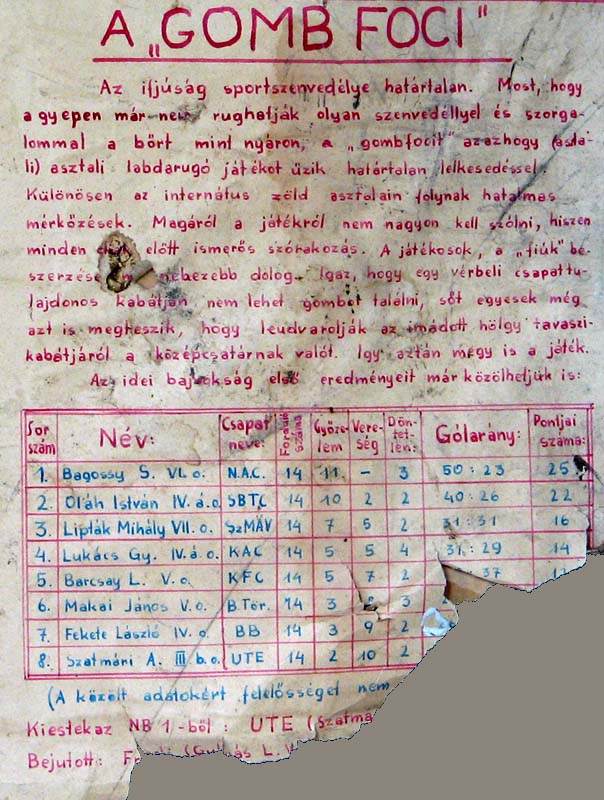 A „GOMB FOCI"
Az ifjúság sportszenvedélye határtalan. Most, hogy
a gyepen már nem rughatják olyan szenvedéllyel és szorga-
lommal a bőrt mint nyáron, a „gombfocit" azazhogy (asta-
li) asztali labdarugó játékot űzik határtalan lelkesedéssel.
Különösen az internátus zöld asztalain folynak hatalmas
mérkőzések. Magáról a játékról nem nagyon kell szólni, hiszen
minden előtt ismerős szórakozás. A játékosok, a „fiúk" be-
szerzése nehezebb dolog. Igaz, hogy egy vérbeli csapattu-
lajdonos kabátján nem lehet gombot találni, sőt egyesek még
azt is megteszik, hogy leudvarolják az imádott hölgy tavaszi-
kabátjáról a középcsatárnak valót. Igy aztán megy is a játék.
Az idei bajnokság első eredményeit már közölhetjük is:
Sor szám Név: Csapat neve: Forduló száma Győze-lem Vere-ség Dön-tet-len: Gólarány: Pontjai száma:
1. Bagossy S. VI. o. N.A.C. 14 11 – 3 50 : 23 25
2. Oláh István IV. á. o. SBTC 14 10 2 2 40 : 26 22
3. Lipták Mihály VII. o. SzMÁV 14 7 5 2 31 : 31 16
4. Lukács Gy. IV. á. o. KAC 14 5 5 4 31 : 29 14
5. Barcsay L. V. o. KFC 14 5 7 2 37
6. Makai János V. o. B.Tör. 14 3 8 3
7. Fekete László IV. o. BB 14 3 9 2
8. Szatmári A. III. b. o. UTE 14 2 10 2
(A közölt adatokért felelősséget nem
Kiestek az NB 1-ből : UTE (Szatma
Bejutott: